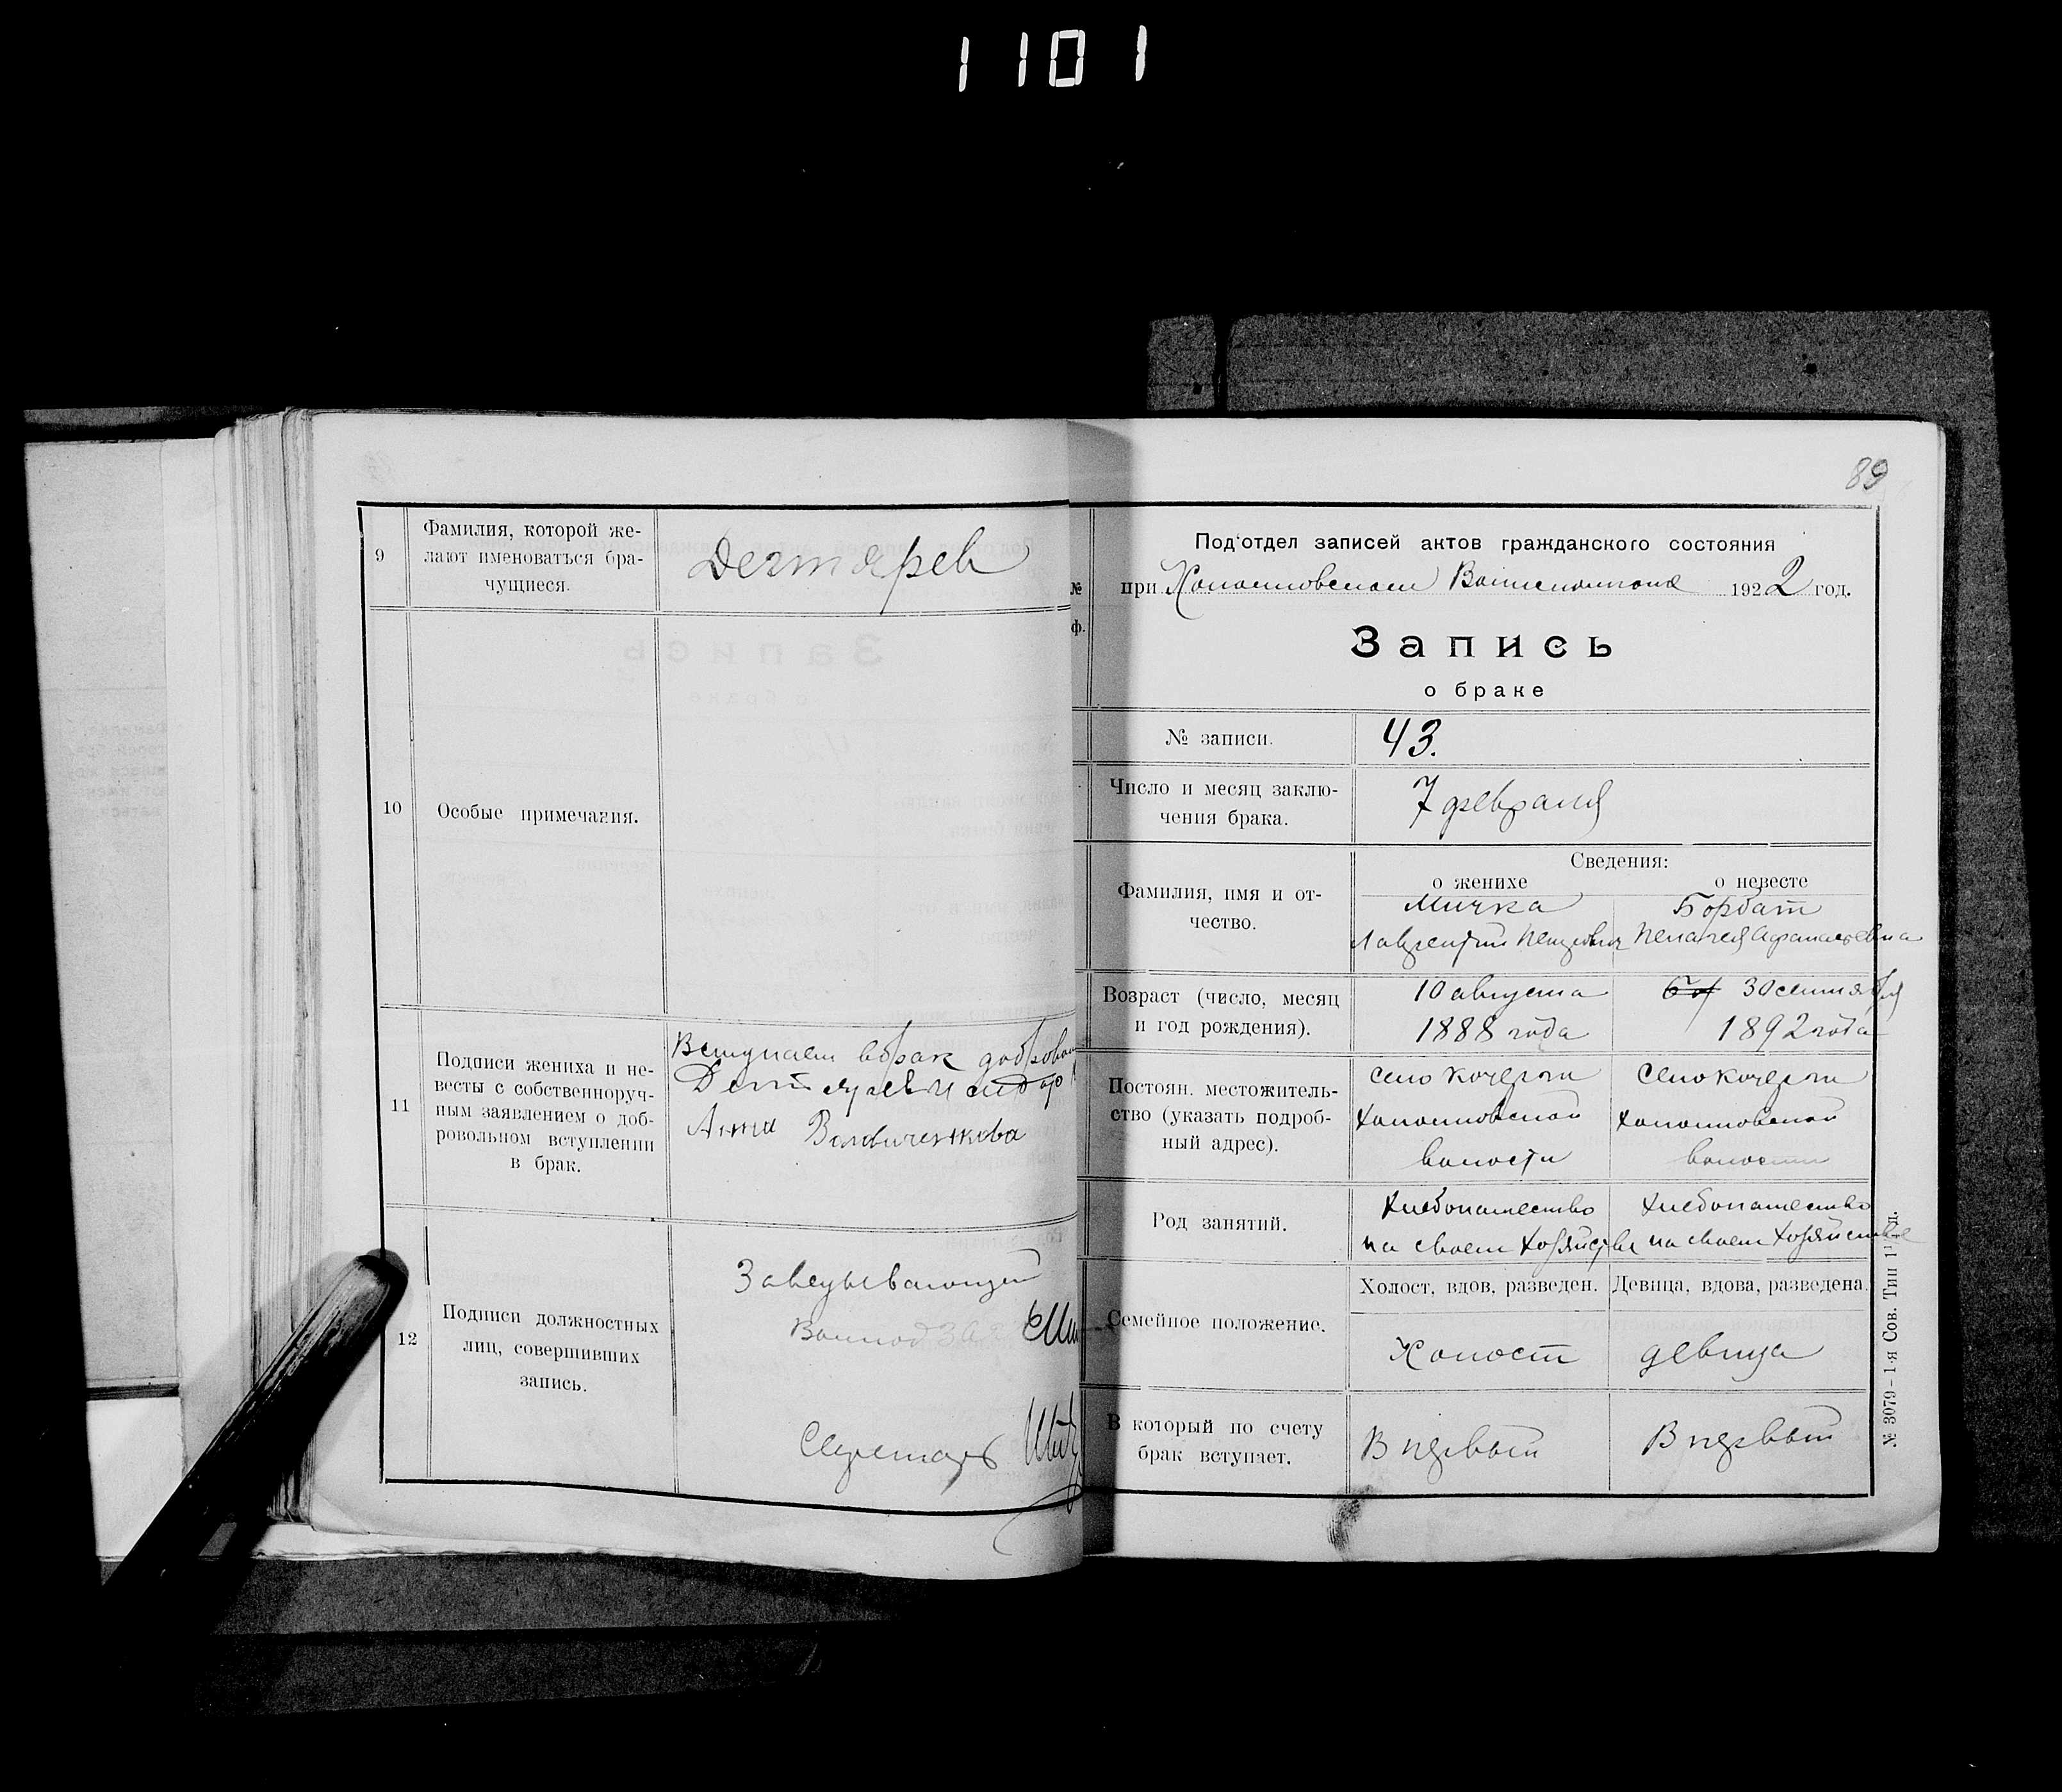 1101
9
Фамилия, которой же-
лают именоваться бра-
чущиеся.
Дегтярев
10
Особые примечания.
11
Подписи жениха и не-
весты с собственноруч-
ным заявлением о доб-
ровольном вступлении
в брак.
Вступаем в брак добровол
Дегтярев Исидор
Анна
12
Подписи должностных
лиц, совершивших
запись.
Заведывающий
Секретарь
89
№
ф.
Под'отдел записей актов гражданского состояния
при 1922 год.
Запись
о браке
№ записи.
43.
Число и месяц заклю-
чения брака.
7 февраля
Фамилия, имя и от-
чество.
Сведения:
о женихе
о невесте
Мичка
Лаврентий
Борбат
Пелагея Афанасьевна
Возраст (число, месяц
и год рождения).
10 августа
1888 года
30 сентября
1892 года
Постоян. местожитель-
ство (указать подроб-
ный адрес).
село Кочерги
волости
село Кочерги
волости
Род занятий.
хлебопашество
на своем хозяйстве
хлебопашество
на своем хозяйстве
Семейное положение.
Холост, вдов, разведен.
Девица, вдова, разведена.
Холост
девица
В который по счету
брак вступает.
В первый
В первый
№ 3079-1-я Сов. Тип